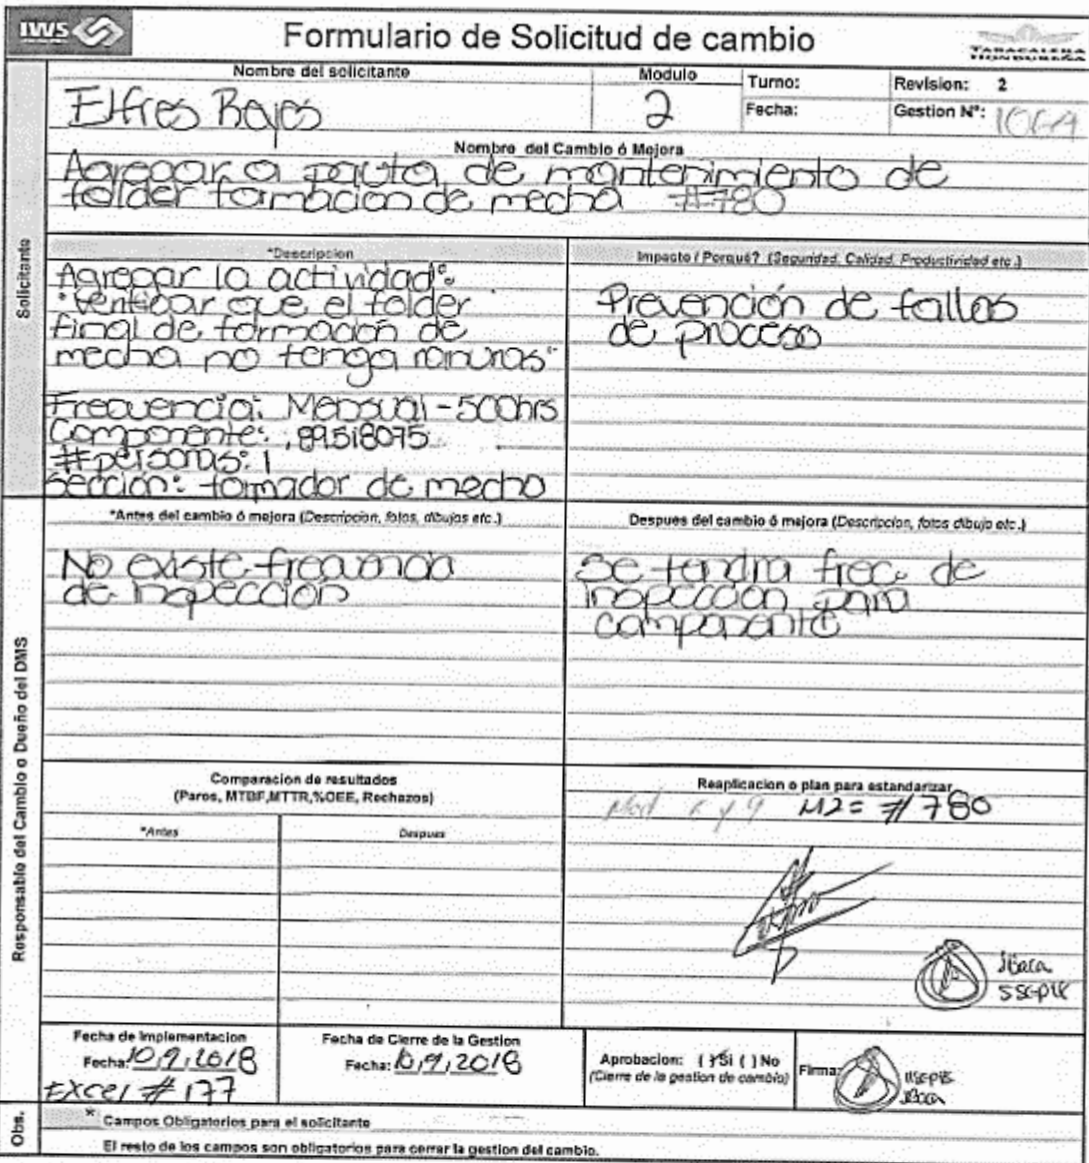 IWS
Formulario de Solicitud de cambio
TABACALERA
HONDUREÑA
Nombre del solicitante
Modulo
Turno:
Revision: 2
Elfres Reyes
2
Fecha:
Gestion Nº: 1064
Nombre del Cambio ó Mejora
Agregar a pauta de mantenimiento de
folder formacion de mecha #780
Solicitante
*Descripcion
Agregar la actividad:
"Verificar que el folder
final de formación de
mecha no tenga ranuras"
Frecuencia: Mensual - 500hrs
Componente: 89518075
#personas: 1
Sección: formador de mecha
Impacto / Porqué? (Seguridad, Calidad, Productividad etc.)
Prevención de fallas
de proceso
Responsable del Cambio o Dueño del DMS
*Antes del cambio ó mejora (Descripcion, fotos, dibujos etc.)
No existe frecuencia
de inspección
Despues del cambio ó mejora (Descripcion, fotos dibujo etc.)
Se tendra frec. de
inspección para
componente
Comparacion de resultados
(Paros, MTBF,MTTR,%OEE, Rechazos)
*Antes
Despues
Reaplicacion o plan para estandarizar
y 9 M2= #780
JBaca
Fecha de Implementacion
Fecha: 10,9,2018
Excel # 177
Fecha de Cierre de la Gestion
Fecha: 10,9,2018
Aprobacion: ( ) Si ( ) No
(Cierre de la gestion de cambio)
Firma:
JBaca
Obs.
* Campos Obligatorios para el solicitante
El resto de los campos son obligatorios para cerrar la gestion del cambio.